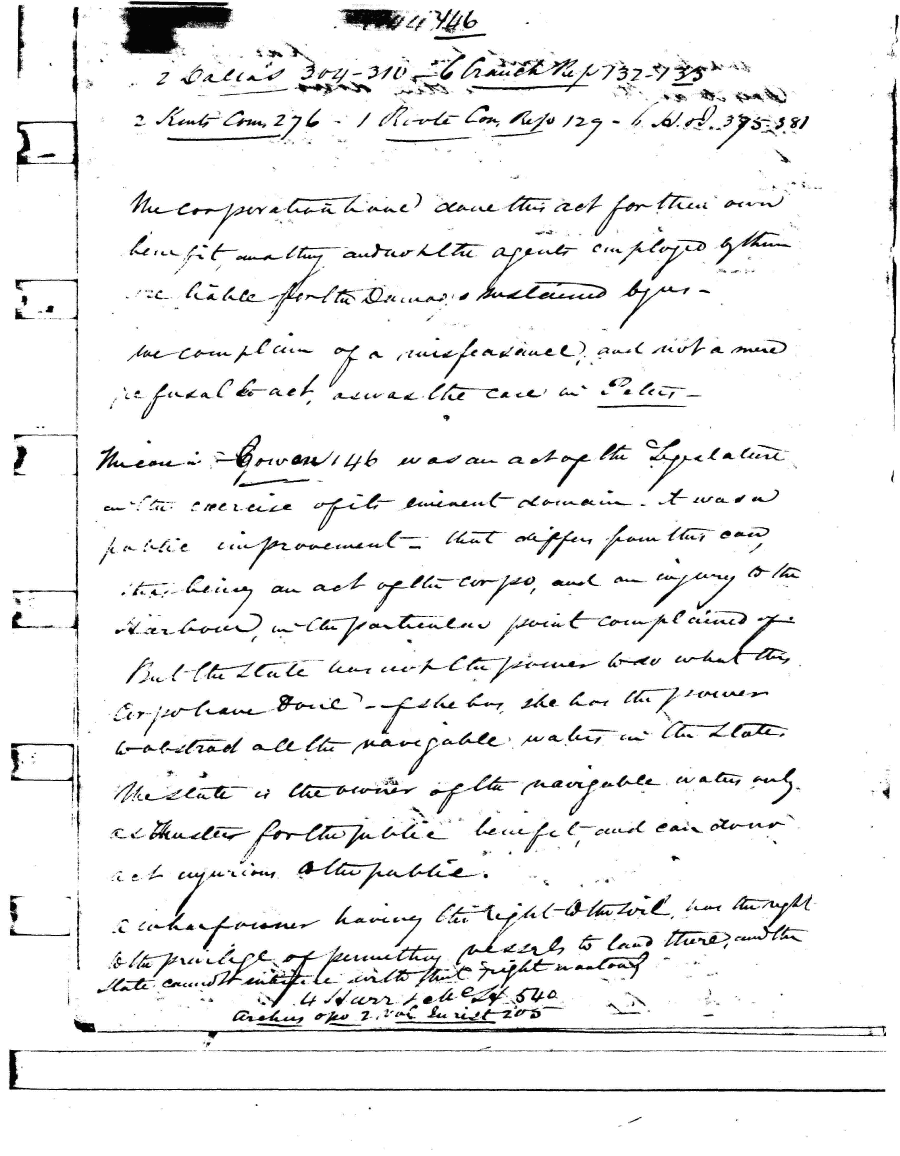 446
2 Dallas 304-310 - 6 Cranch Rep 132-135
2 Kents Com, 276 - 1 Con, Rep 129 - 6 H. & J. 375-381
The corporation have done this act for their own
benefit, and they and not the agents employed by them
are liable for the Damages sustained by us -
we complain of a misfeasance, and not a mere
refusal to act, as was the case in Peters -
The case in Cowen 146 was an act of the Legislature
in the exercise of its eminent domain. It was a
public improvement - that differs from this case,
this being an act of the corpo, and an injury to the
Harbour, in the particular point complained of -
But the State has not the power to do what this
Corpo have done - if she has, she has the power
to obstruct all the navigable waters in the State
The State is the owner of the navigable waters only
as trustee for the public benefit, and can do no
act injurious to the public.
a wharf owner having the right to the soil, has the right
to the privilege of permitting vessels to land there, and the
State cannot interfere with that right
4 Harr & McH 540
Archers opo 2. vol Jurist 205